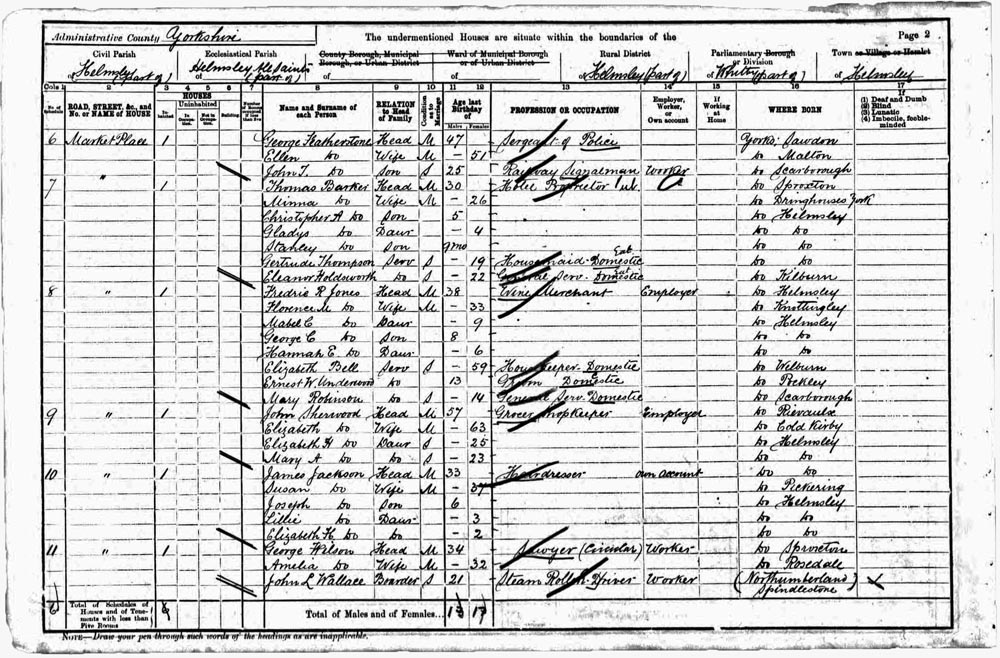 Administrative County Yorkshire The undermentioned Houses are situate within the boundaries of the Page 2
Civil Parish Ecclesiastical Parish County Borough, Municipal Borough, or Urban District Ward of Municipal Borough or of Urban District Rural District Parliamentary Borough or Division Town or Village or Hamlet
of Helmsley (part of) of Helmsley All Saints (part of) of of of Helmsley (part of) of Whitby (part of) of Helmsley
Cols 1 2 3 4 5 6 7 8 9 10 11 12 13 14 15 16 17
No. of Schedule ROAD, STREET, &c., and No. or NAME of HOUSE HOUSES Inhabited Uninhabited In Occupation Not in Occupation Building Name and Surname of each Person RELATION to Head of Family Condition as to Marriage Age last Birthday of Males Females PROFESSION OR OCCUPATION Employer, Worker, or Own account If Working at Home WHERE BORN If (1) Deaf and Dumb (2) Blind (3) Lunatic (4) Imbecile, feeble-minded
6 Market Place 1 George Featherstone Head M 47 Sergeant of Police Yorks; Sawdon
Ellen Do Wife M - 51 Do Malton
John T. Do Son S 25 Railway Signalman Worker Do Scarborough
7 " 1 Thomas Barker Head M 30 Hotel Proprietor Do Sproxton
Minna Do Wife M - 26 Do Dringhouses York
Christopher A Do Son 5 Do Helmsley
Gladys Do Daur - 4 Do Do
Stanley Do Son 9mo Do Do
Gertrude Thompson Serv S - 19 Housemaid-Domestic Do Do
Eleanor Holdsworth Do S - 22 General Serv. Domestic Do Kilburn
8 " 1 Fredric R Jones Head M 38 Wine Merchant Employer Do Helmsley
Florence M Do Wife M - 33 Do Knottingley
Mabel C Do Daur - 9 Do Helmsley
George C Do Son 8 Do Do
Hannah E. Do Daur - 6 Do Do
Elizabeth Bell Serv S - 59 Housekeeper-Domestic Do Welburn
Ernest W. Underwood Do 13 Groom Domestic Do Pockley
Mary Robinson Do S - 14 General Serv. Domestic Do Scarborough
9 " 1 John Sherwood Head M 57 Grocer Shopkeeper Employer Do Rievaulx
Elizabeth Do Wife M - 63 Do Cold Kirby
Elizabeth H Do Daur S - 25 Do Helmsley
Mary A Do Do S - 23 Do Do
10 " 1 James Jackson Head M 33 Hairdresser own account Do Do
Susan Do Wife M - 37 Do Pickering
Joseph Do Son 6 Do Helmsley
Lillie Do Daur - 3 Do Do
Elizabeth H. Do Do - 2 Do Do
11 " 1 George Wilson Head M 34 Sawyer (Circular) Worker Do Sproxton
Amelia Do Wife M - 32 Do Rosedale
John L Wallace Boarder S 21 Steam Roller-Driver Worker (Northumberland) Spindlestone
6 Total of Schedules of Houses and of Tenements with less than Five Rooms 6 Total of Males and of Females... 13 17
NOTE—Draw your pen through such words of the headings as are inapplicable.